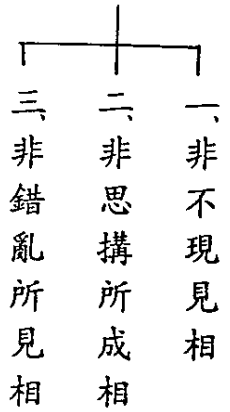 一、非不現見相
二、非思搆所成相
三、非錯亂所見相